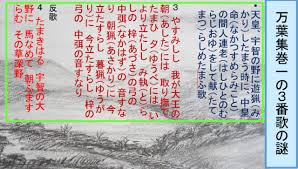 万葉集巻一の3番歌の謎
・天皇、宇智の野に遊猟(み
かり)したまう時に、中皇
命(なかつすめらみこと)
の間人連老(はしひとのむ
らじおゆ)をして献(たて
まつ)らしめたまふ歌
3 やすみしし 我が大王の
朝(あした)には 取り撫で
たまひ 夕(ゆうべ)には い
縁せ立たしし み執(と)ら
しの 梓(あづさ)の弓の
中弭(なかはず)の 音すな
り 朝猟(あさかり)に 今
立たすらし 暮猟(ゆうが
り)に 今立たすらし 梓の
弓の 中弭の音すなり
反歌
4 たまきはる 宇智の大
野に 馬なめて 朝ふますら
む その草深野